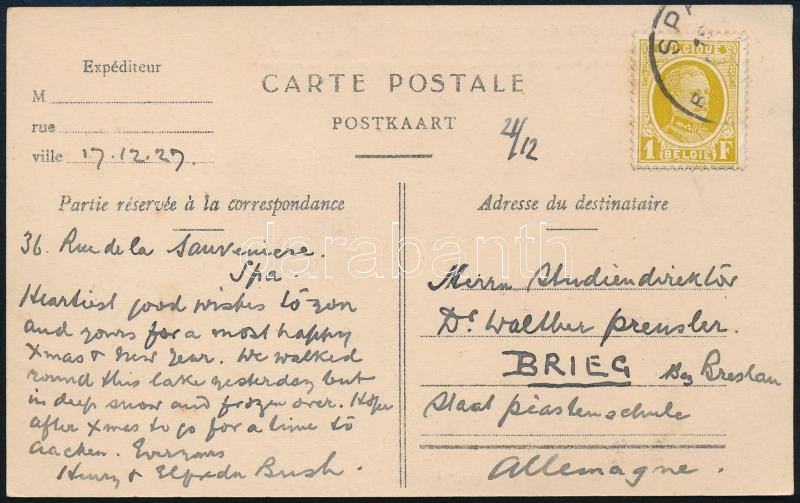 Expéditeur
M
rue
ville 17.12.27.
CARTE POSTALE
POSTKAART
24/12
SPA
BELGIQUE
1 F
BELGIË
Partie réservée à la correspondance
Adresse du destinataire
36. Rue de la Sauveniere.
Spa
Heartiest good wishes to you
and yours for a most happy
Xmas & New Year. We walked
round this lake yesterday but
in deep snow and frozen over. Hope
after Xmas to go for a time to
Aachen. Ever yours
Henry & Elfreda Bush.
Herrn Studiendirektor
Dr. Walther Preusler.
BRIEG Bez Breslau
Staat Piastenschule
Allemagne.
darabanth